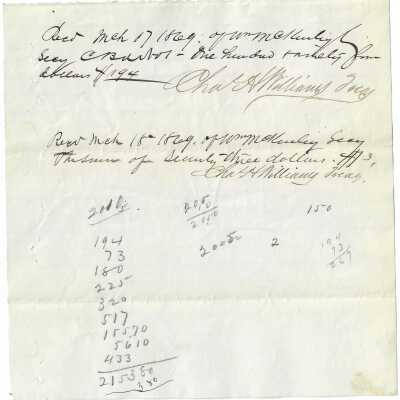 Recd Mch 17 1869. of Wm McKinley
Secy
One hundred & ninety four
dollars $194
Chas H Williams Treas
Recd Mch 18 1869. of Wm McKinley Secy
The sum of Seventy three dollars. $73,
Chas H Williams Treas.
150
194
73
2
194
73
180
267
225
320
517
1570
5610
433
2153.50